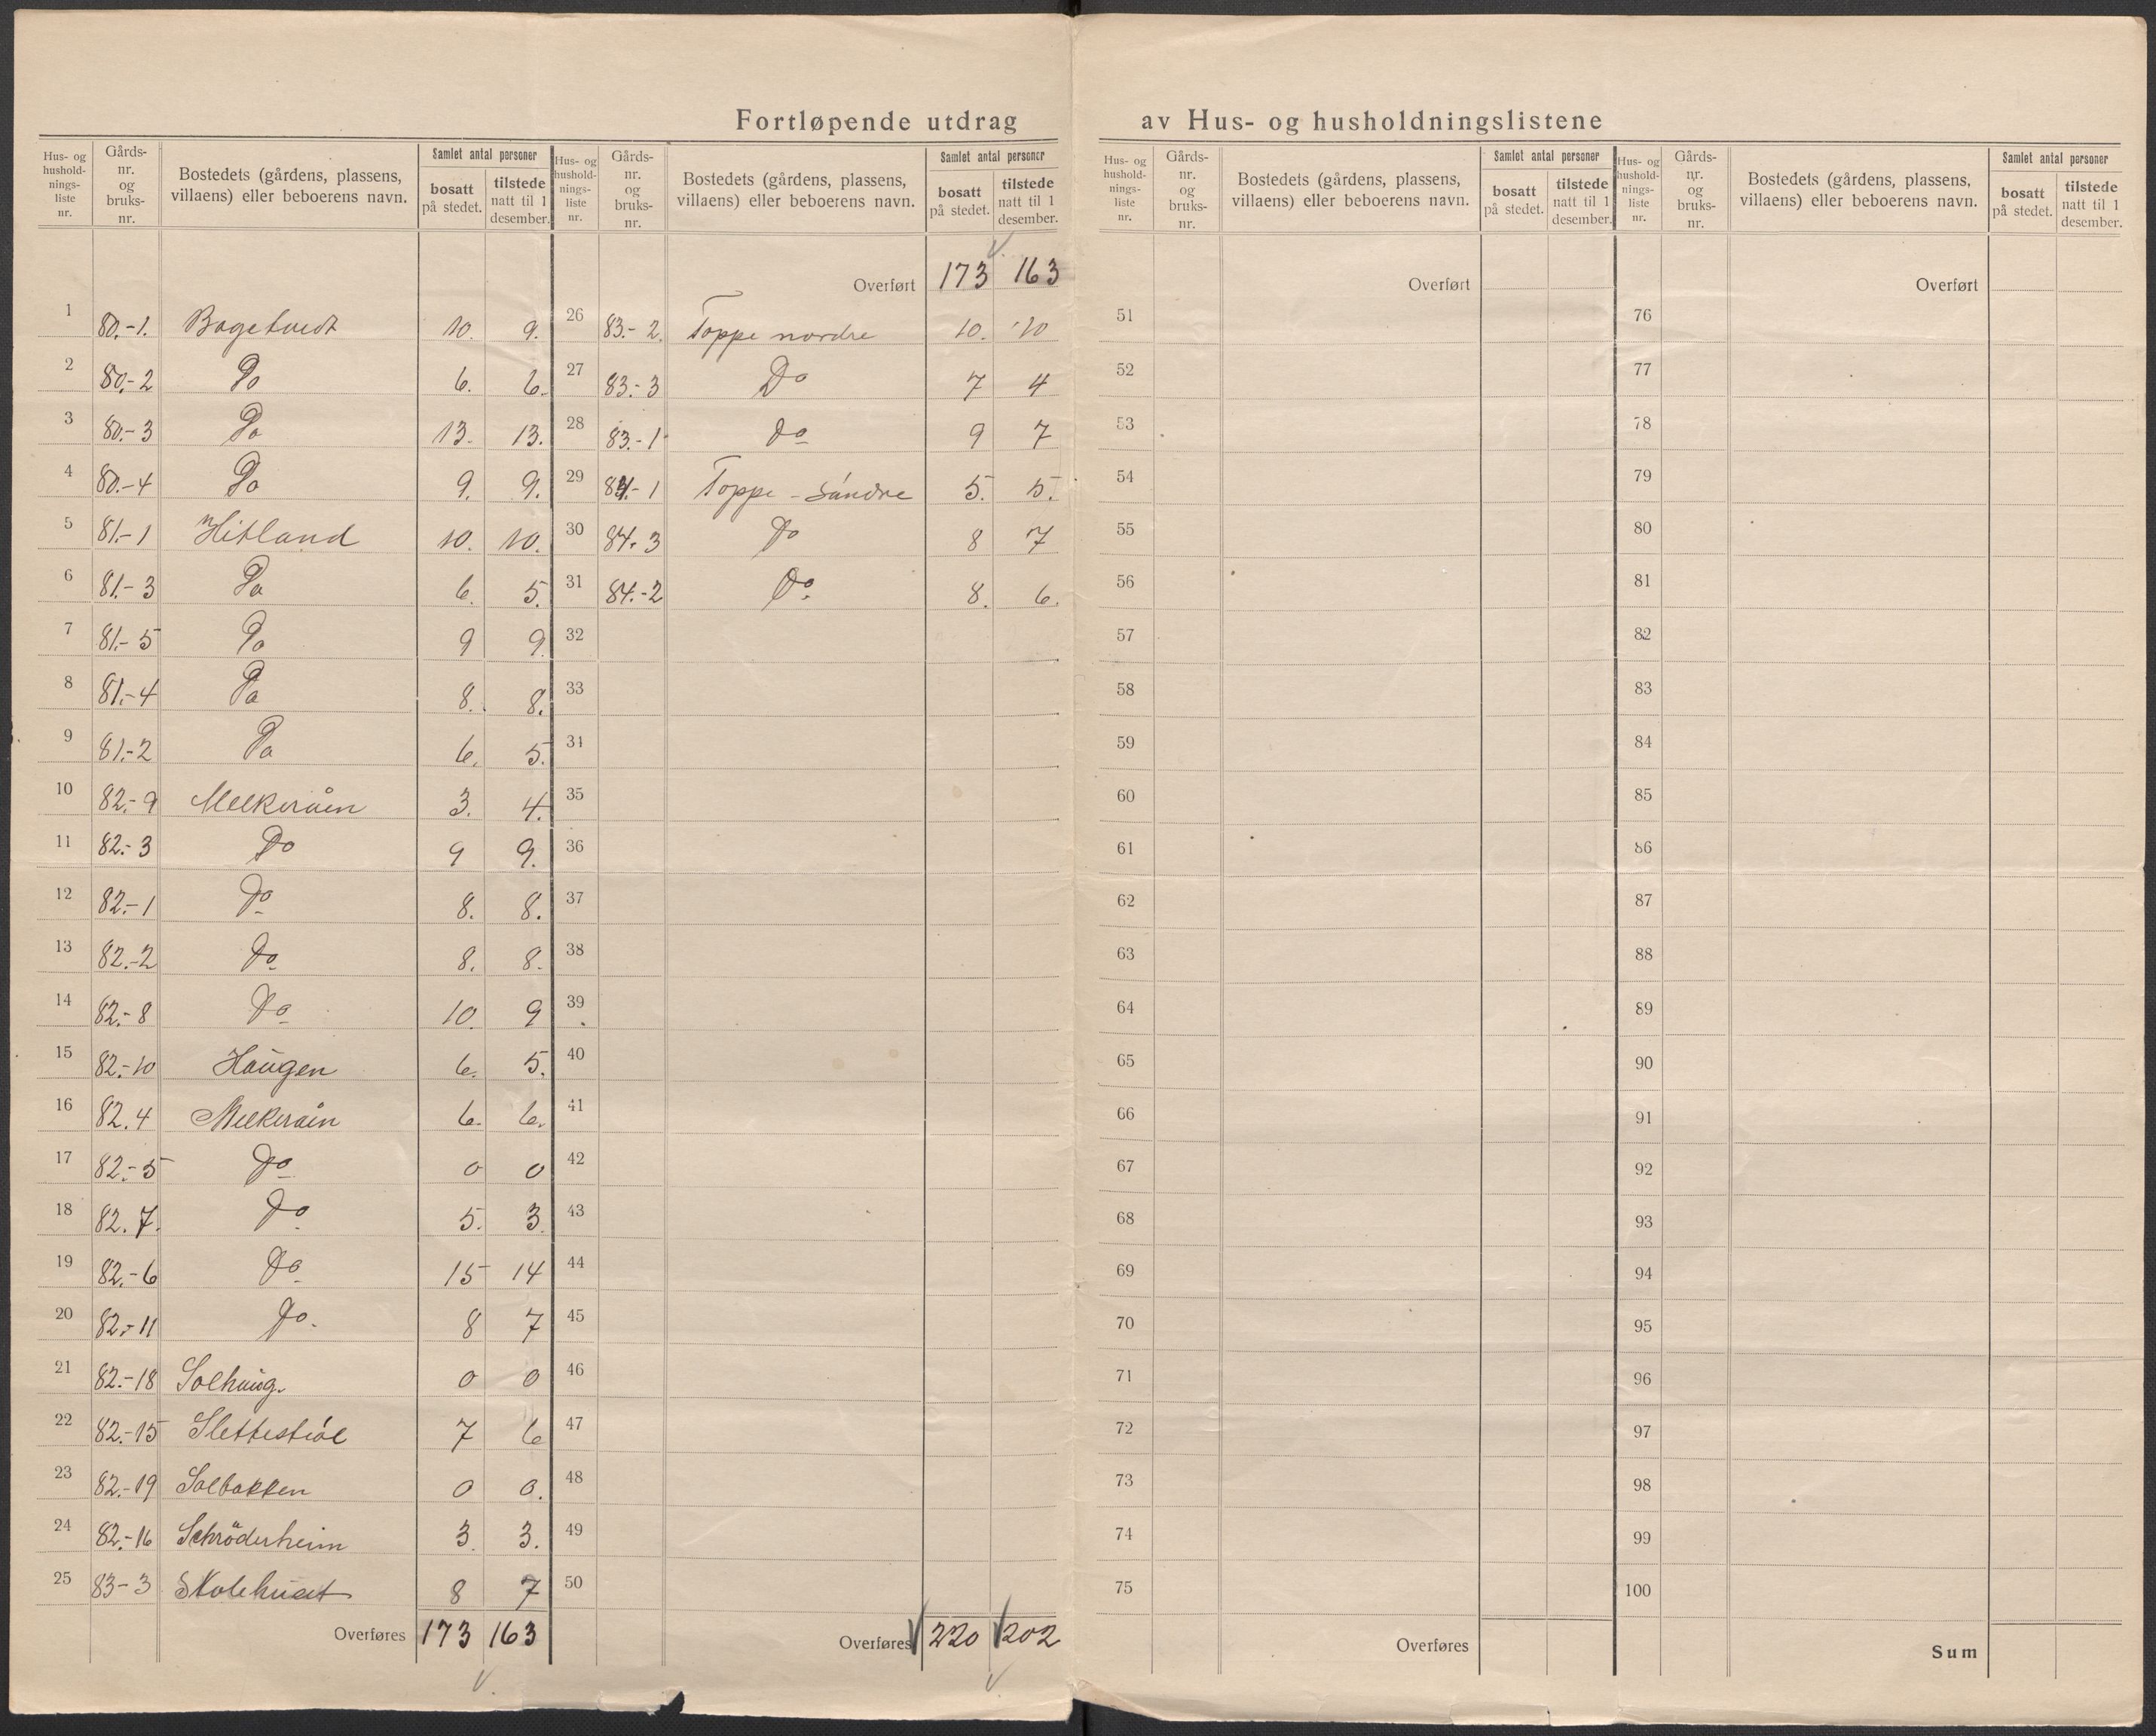 Fortløpende utdrag av Hus- og husholdningslistene
Hus- og husholdningsliste nr. | Gårds-nr. og bruks-nr. | Bostedets (gårdens, plassens, villaens) eller beboerens navn. | Samlet antal personer | bosatt på stedet. | tilstede natt til 1 desember.
1 80.-1. Bogetvedt 10. 9.
2 80.-2 Do 6. 6.
3 80.-3 Do 13. 13.
4 80.-4 Do 9. 9.
5 81.-1 Hitland 10. 10.
6 81.-3 Do 6. 5.
7 81.-5 Do 9 9.
8 81.-4 Do 8. 8.
9 81.-2 Do 6. 5.
10 82.-9 Melkeråen 3. 4.
11 82.-3 Do 9 9.
12 82.-1 Do 8. 8.
13 82.-2 Do 8. 8.
14 82.-8 Do 10. 9
15 82.-10 Haugen 6. 5.
16 82.4 Melkeråen 6. 6.
17 82.-5 Do 0 0
18 82.7. Do 5. 3.
19 82.-6 Do 15 14
20 82.-11 Do. 8 7
21 82.-18 Solhaug. 0 0
22 82.-15 Slettestøl 7 6
23 82.-19 Solbakken 0 0.
24 82.-16 Schröderheim 3. 3.
25 83-3 Skolehuset 8 7
Overføres 173 163
Hus- og husholdningsliste nr. | Gårds-nr. og bruks-nr. | Bostedets (gårdens, plassens, villaens) eller beboerens navn. | Samlet antal personer | bosatt på stedet. | tilstede natt til 1 desember.
Overført 173 163
26 83.-2. Toppe nordre 10. 10
27 83.-3 Do 7 4
28 83.-1 do 9 7
29 84.-1 Toppe - søndre 5. 5.
30 84.-3 Do 8 7
31 84.-2 Do. 8. 6.
32
33
34
35
36
37
38
39
40
41
42
43
44
45
46
47
48
49
50
Overføres 220 202
Hus- og husholdningsliste nr. | Gårds-nr. og bruks-nr. | Bostedets (gårdens, plassens, villaens) eller beboerens navn. | Samlet antal personer | bosatt på stedet. | tilstede natt til 1 desember.
Overført
51
52
53
54
55
56
57
58
59
60
61
62
63
64
65
66
67
68
69
70
71
72
73
74
75
Overføres
Hus- og husholdningsliste nr. | Gårds-nr. og bruks-nr. | Bostedets (gårdens, plassens, villaens) eller beboerens navn. | Samlet antal personer | bosatt på stedet. | tilstede natt til 1 desember.
Overført
76
77
78
79
80
81
82
83
84
85
86
87
88
89
90
91
92
93
94
95
96
97
98
99
100
Sum